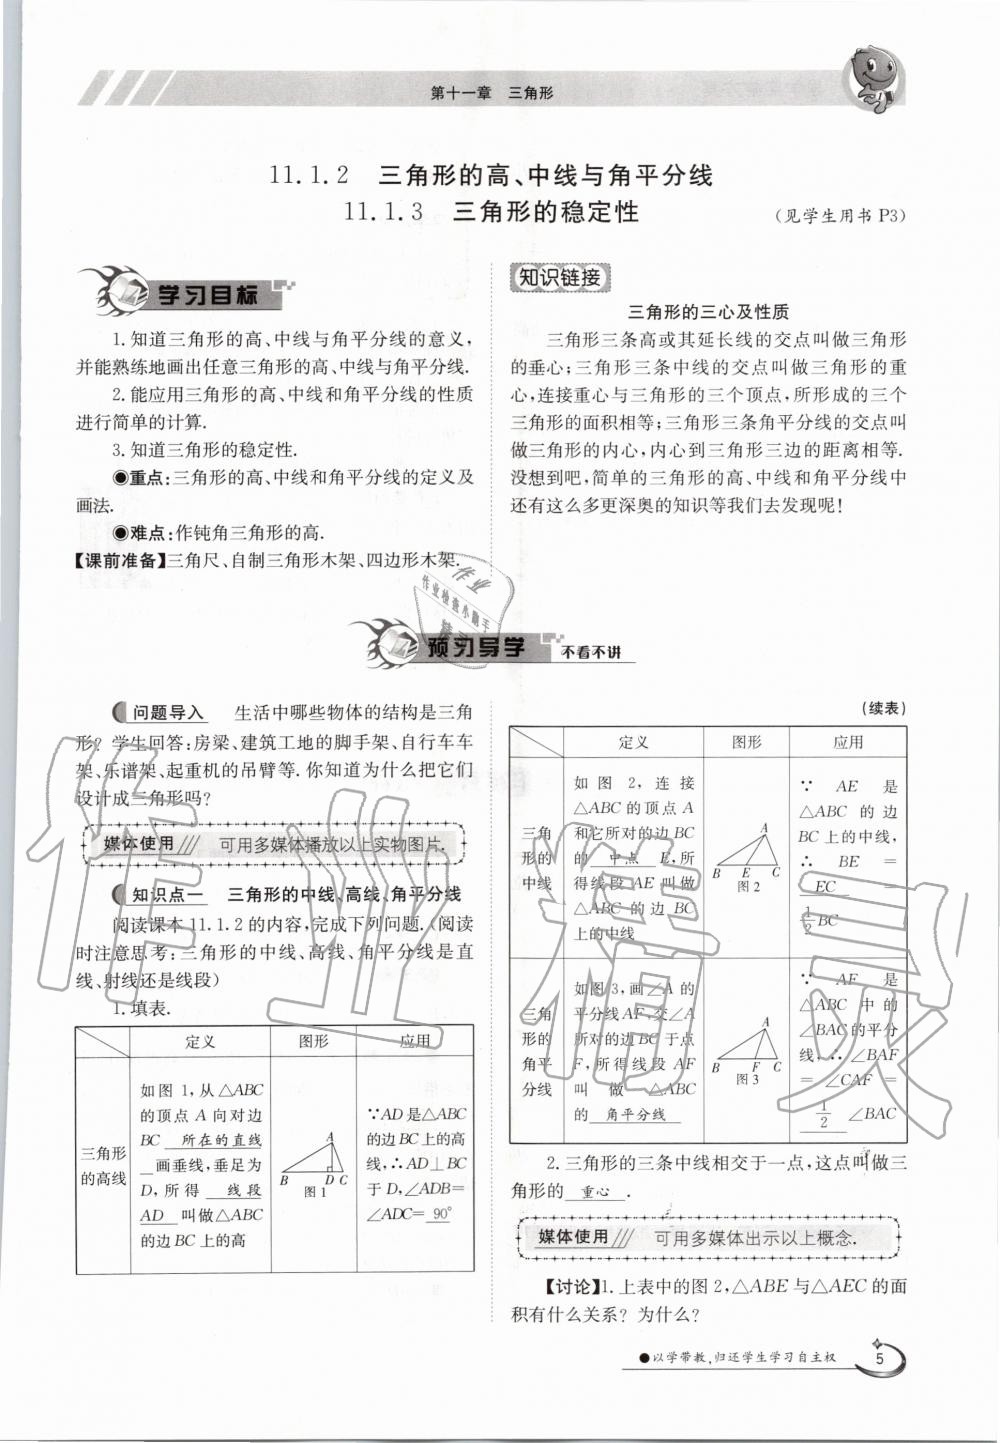 第十一章 三角形
11.1.2 三角形的高、中线与角平分线
11.1.3 三角形的稳定性
(见学生用书 P3)
学习目标
1.知道三角形的高、中线与角平分线的意义,
并能熟练地画出任意三角形的高、中线与角平分线.
2.能应用三角形的高、中线和角平分线的性质
进行简单的计算.
3.知道三角形的稳定性.
◉重点:三角形的高、中线和角平分线的定义及
画法.
◉难点:作钝角三角形的高.
【课前准备】三角尺、自制三角形木架、四边形木架.
知识链接
三角形的三心及性质
三角形三条高或其延长线的交点叫做三角形
的垂心;三角形三条中线的交点叫做三角形的重
心,连接重心与三角形的三个顶点,所形成的三个
三角形的面积相等;三角形三条角平分线的交点叫
做三角形的内心,内心到三角形三边的距离相等.
没想到吧,简单的三角形的高、中线和角平分线中
还有这么多更深奥的知识等我们去发现呢!
作业
作业检查小助手
预习导学 不看不讲
问题导入 生活中哪些物体的结构是三角
形? 学生回答:房梁、建筑工地的脚手架、自行车车
架、乐谱架、起重机的吊臂等. 你知道为什么把它们
设计成三角形吗?
媒体使用 可用多媒体播放以上实物图片.
知识点一 三角形的中线、高线、角平分线
阅读课本 11.1.2 的内容,完成下列问题.(阅读
时注意思考:三角形的中线、高线、角平分线是直
线、射线还是线段)
1.填表.
定义 图形 应用
三角形
的高线
如图 1,从△ABC
的顶点 A 向对边
BC 所在的直线
画垂线,垂足为
D,所得 线段
AD 叫做△ABC
的边 BC 上的高
A
B D C
图 1
∵AD 是△ABC
的边 BC 上的高
线,∴AD⊥BC
于 D,∠ADB=
∠ADC= 90°
(续表)
定义 图形 应用
三角
形的
中线
如图 2,连接
△ABC 的顶点 A
和它所对的边 BC
的 中点 E,所
得线段 AE 叫做
△ABC 的边 BC
上的中线
A
B E C
图 2
∵ AE 是
△ABC 的边
BC 上的中线,
∴ BE =
EC =
1/2 BC
三角
形的
角平
分线
如图 3,画∠A 的
平分线 AF,交∠A
所对的边 BC 于点
F,所得线段 AF
叫做 △ABC
的 角平分线
A
B F C
图 3
∵ AF 是
△ABC 中的
∠BAC 的平分
线,∴∠BAF
= ∠CAF =
1/2 ∠BAC
2.三角形的三条中线相交于一点,这点叫做三
角形的 重心 .
媒体使用 可用多媒体出示以上概念.
【讨论】1.上表中的图 2,△ABE 与△AEC 的面
积有什么关系? 为什么?
●以学带教,归还学生学习自主权
5
作业精灵